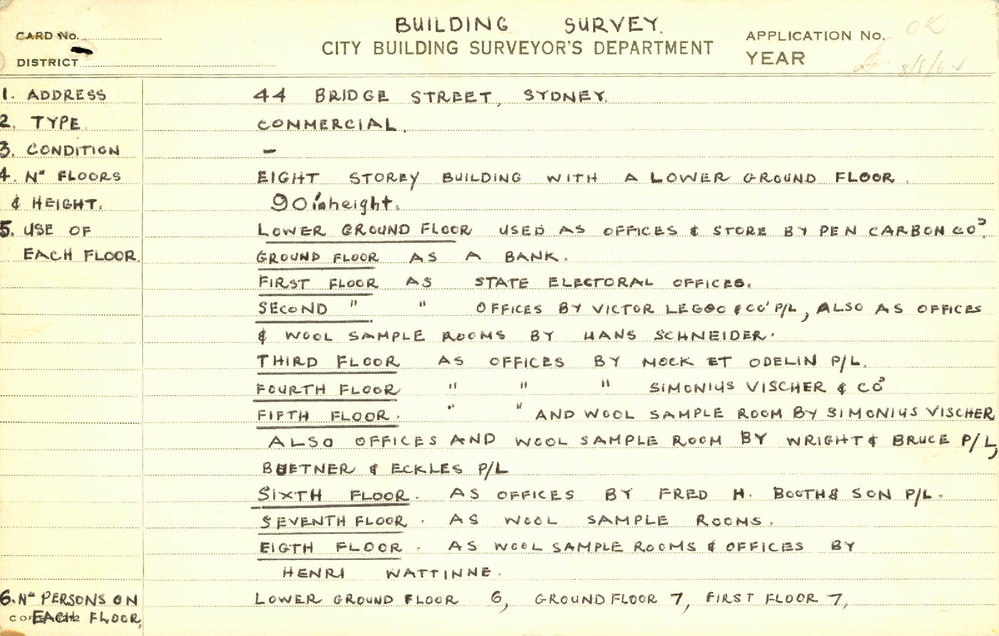 BUILDING SURVEY.
CARD No.
CITY BUILDING SURVEYOR'S DEPARTMENT
APPLICATION No. OK
DISTRICT
YEAR
1. ADDRESS 44 BRIDGE STREET, SYDNEY.
2. TYPE. COMMERCIAL.
3. CONDITION –
4. Nº FLOORS EIGHT STOREY BUILDING WITH A LOWER GROUND FLOOR.
& HEIGHT. 90' in height.
5. USE OF LOWER GROUND FLOOR USED AS OFFICES & STORE BY PEN CARBON CO.
EACH FLOOR. GROUND FLOOR AS A BANK.
FIRST FLOOR AS STATE ELECTORAL OFFICES.
SECOND " " OFFICES BY VICTOR LEGGO & CO P/L, ALSO AS OFFICES
& WOOL SAMPLE ROOMS BY HANS SCHNEIDER.
THIRD FLOOR AS OFFICES BY MOCK ET ODELIN P/L.
FOURTH FLOOR " " " SIMONIUS VISCHER & CO
FIFTH FLOOR. " " AND WOOL SAMPLE ROOM BY SIMONIUS VISCHER
ALSO OFFICES AND WOOL SAMPLE ROOM BY WRIGHT & BRUCE P/L,
BUETNER & ECKLES P/L
SIXTH FLOOR. AS OFFICES BY FRED H. BOOTH & SON P/L.
SEVENTH FLOOR. AS WOOL SAMPLE ROOMS.
EIGTH FLOOR. AS WOOL SAMPLE ROOMS & OFFICES BY
HENRI WATTINNE.
6. Nº PERSONS ON LOWER GROUND FLOOR 6, GROUND FLOOR 7, FIRST FLOOR 7,
EACH FLOOR,